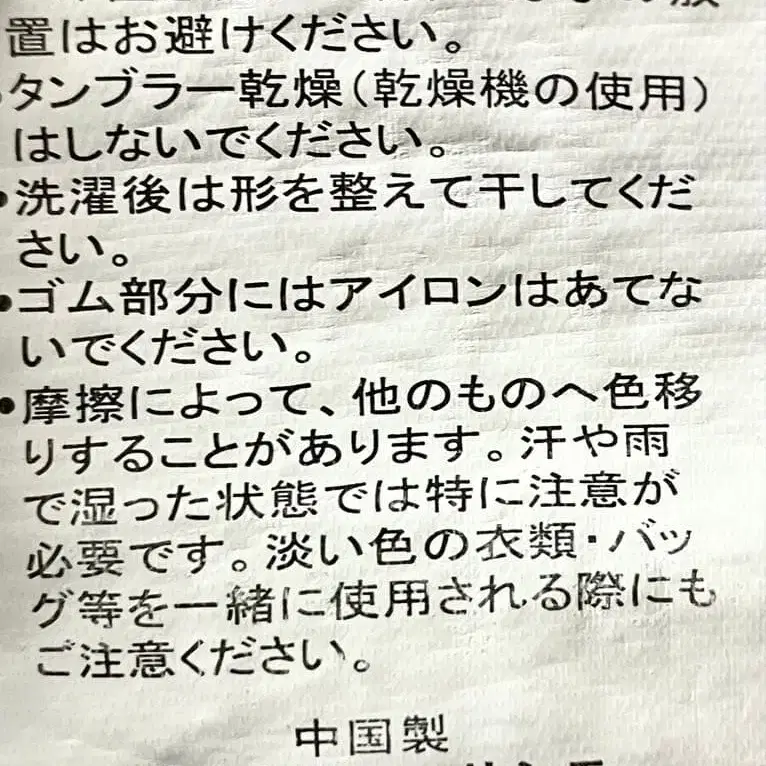 置はお避けください。
・タンブラー乾燥(乾燥機の使用)
はしないでください。
・洗濯後は形を整えて干してくだ
さい。
・ゴム部分にはアイロンはあてな
いでください。
・摩擦によって、他のものへ色移
りすることがあります。汗や雨
で湿った状態では特に注意が
必要です。淡い色の衣類・バッ
グ等を一緒に使用される際にも
ご注意ください。
中国製